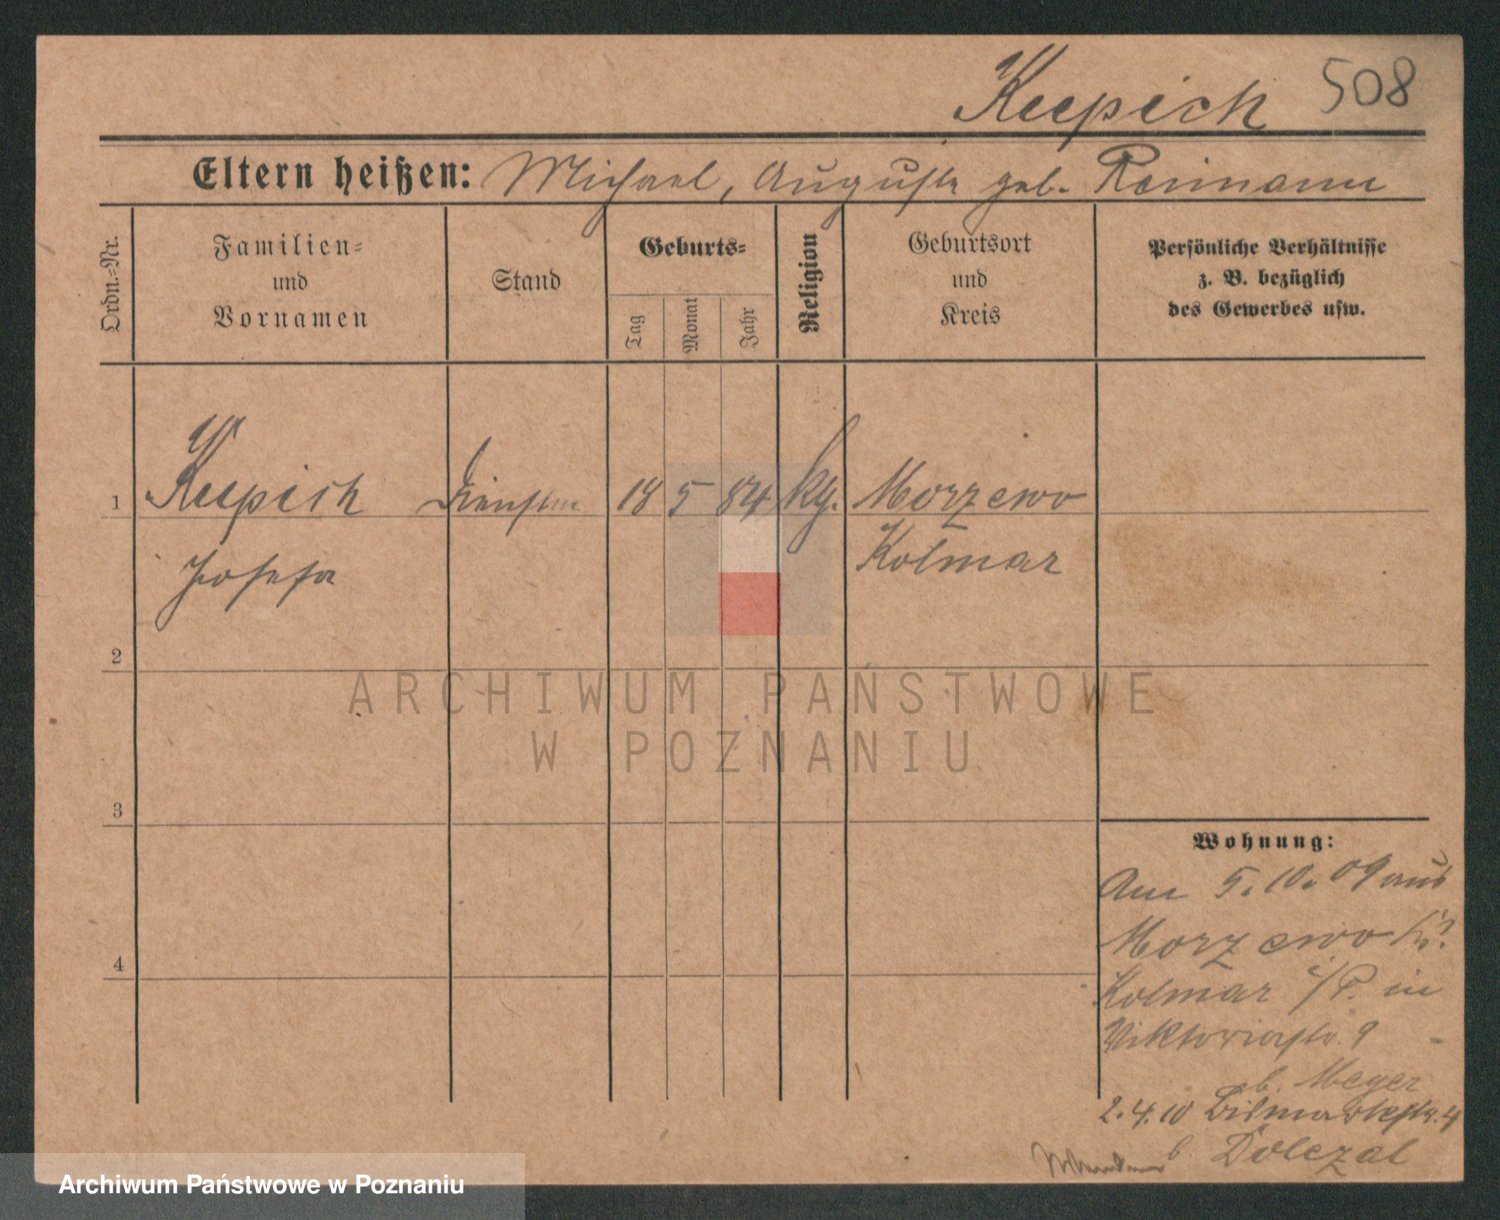 Keepich 508
Eltern heißen: Michael, Auguste geb. Reimann
Ordn.=Nr.
Familien=
und
Vornamen
Stand
Geburts=
Tag
Monat
Jahr
Religion
Geburtsort
und
Kreis
Persönliche Verhältnisse
z. B. bezüglich
des Gewerbes usw.
1 Keepich 18 5 84 kg. Morzewo
Josefa Kolmar
2
3
4
ARCHIWUM PAŃSTWOWE
W POZNANIU
Wohnung:
Am 5. 10. 09 aus
Morzewo
Kolmar i/P. in
Viktoriastr. 9
b. Meyer
2.4.10 Bismarckstr. 4
b. Dolczal
Archiwum Państwowe w Poznaniu